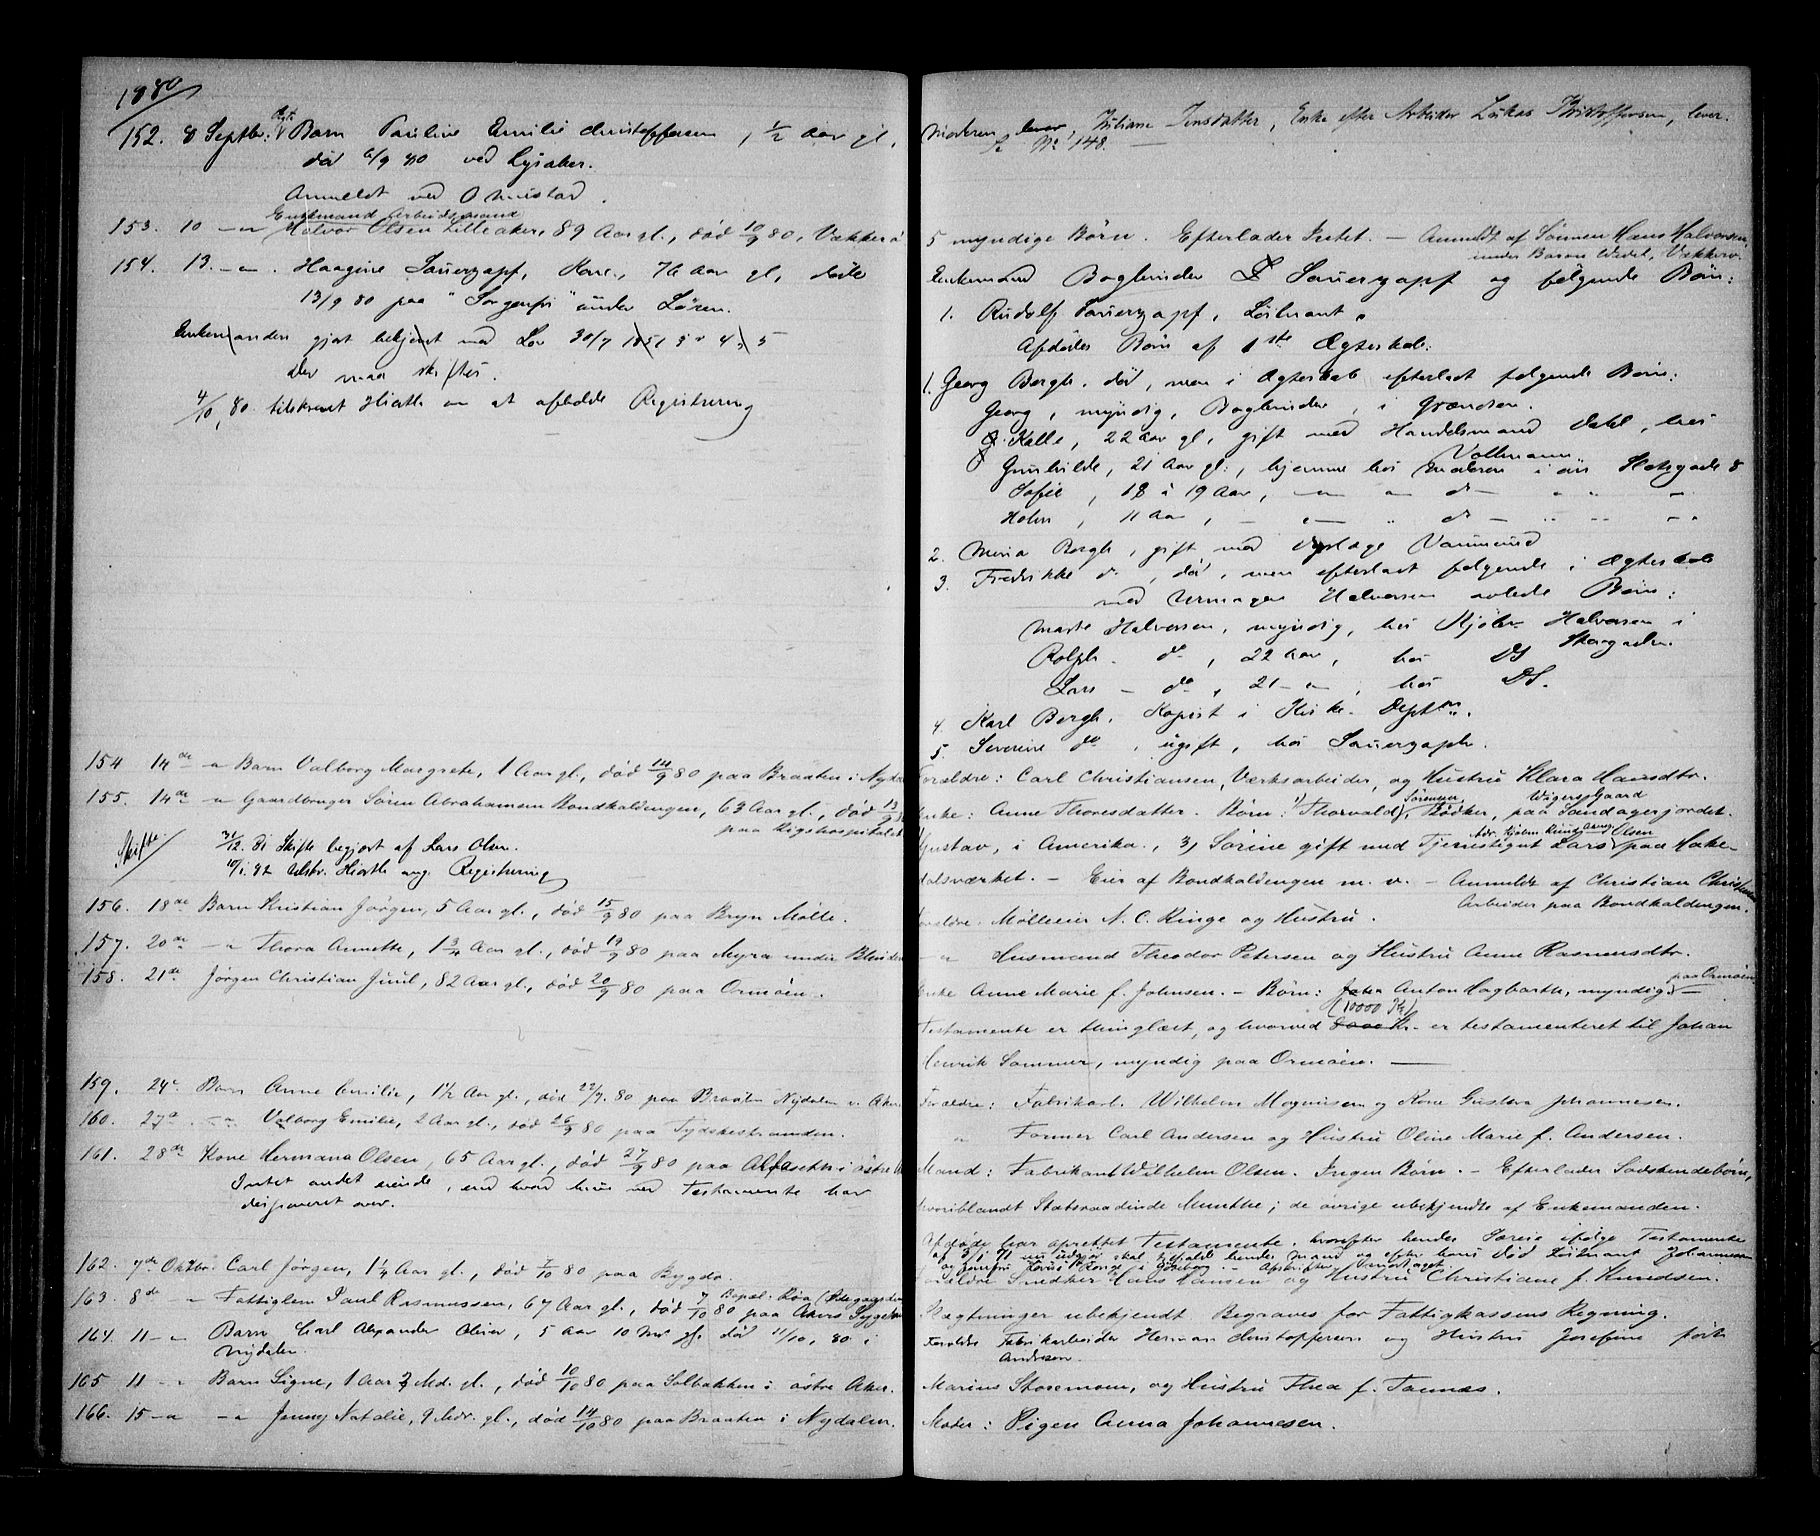 1880
152. 8 Septbr. Ægte Barn Pauline Emilie Christoffersen, 1/2 Aar gl,
død 6/9 80 ved Lysaker.
Anmeldt ved O Mustad.
Enkemand Arbeidsmand
153. 10 — " Halvor Olsen Lilleaker, 89 Aar gl., død 10/9 80, Vækkerö
154. 13. — " . Haagine Sauerzapf, Kone, 76 Aar gl, døde
13/9 80 paa "Sorgenfri" under Løren.
Enkemanden gjort bekjent med Lov 30/7 1851 § 4, 5
der maa skiftes.
4/10 80. tilskrevet Hiorth om at afholde Registrering
154 14de — " Barn Valborg Margrete, 1 Aar gl., død 14/9 80 paa Braaten i Nydal
155. 14de — " Gaardbruger Søren Abrahamsen Bondkaldengen, 63 Aar gl., død 13/9
paa Rigshospitalet
Skifte 31/12. 81 Skifte begjært af Lars Olsen.
10/1. 82 tilskr. Hiorth ang. Registrering
156. 18de Barn Kristian Jørgen, 5 Aar gl., død 15/9 80 paa Bryn Mølle.
157. 20de — " Thora Annette, 1 3/4 Aar gl., død 19/9 80 paa Myra under Blinder
158. 21de Jørgen Christian Juul, 82 Aar gl., død 20/9 80 paa Ormøen.
159. 24e Barn Anne Emilie, 1 1/2 Aar gl., død 22/9. 80 paa Braaten Nydalen v. Aker
160. 27de — " Valborg Emilie, 2 Aar gl., død 26/9 80 paa Tydskestranden.
161. 28de Kone Hermana Olsen, 65 Aar gl., død 27/9 80 paa Alfaseth i østre
Intet andet eiende, end hvad hun ved Testamente har
disponeret over.
162. 7de Oktbr. Carl Jørgen, 1 1/4 Aar gl., død 7/10 80 paa Bygdø
163. 8de — " Fattiglem Paul Rasmussen, 67 Aar gl., død 7/10 80 paa Akers Sygehus
164. 11 — " Barn Carl Alexander Oliver, 5 Aar 10 Md gl. død 11/10, 80 i
Nydalen.
165 11 — " Barn Signe, 1 Aar 2 Md. gl., død 10/10 80 paa Solbakken i østre Aker.
166. 15 — " — " Jenny Natalie, 9 Mdr. gl., død 14/10 80 paa Braaten i Nydalen.
Moderen lever, Juliane Jensdatter, Enke efter Arbeider Lukas Kristoffersen, lever.
Se No 148. —
5 myndige Børn. Efterlader Intet. — Anmeldt af Sønnen Hans Halvorsen
under Baron Wedel, Vækkerø.
Enkemand Bogbinder Sauerzapf og følgende Børn:
1. Rudolf Sauerzapf, Løitnant.
Afdødes Børn af 1ste Ægteskab:
1. Georg Bergh. død, men i Ægteskab efterladt følgende Børn:
Georg, myndig, Bogbinder, i Grændsen.
Kalle, 22 Aar gl, gift med Handelsmand Dahl, hos
Vollmann
Gunhilde, 21 Aar gl., hjemme hos Moderen i øvr Slotsgade 8
Sofie, 18 à 19 Aar, — " — do —
Holm, 11 Aar, — " — do —
2. Maria Bergh, gift med Dyrlæge
3. Fredrikke do, død, men efterladt følgende i Ægteskab
med Urmager Halvorsen avlede Børn:
Marte Halvorsen, myndig, hos Kjøbm Halvorsen i
Storgaden.
Rolph. do, 22 Aar, hos DS
Lars — do, 21 — ", hos DS.
4. Karl Bergh, Kopist i Kirke-Deptm.
5. Severine do, ugift, hos Sauerzaph.
Forældre: Carl Christiansen, Værksarbeider, og Hustru Klara Hansdtr.
Enke: Anne Thoresdatter. Børn: 1) Thorvald Sørensen, Bødker, paa Sandagerjordet.
Gustav, i Amerika., 3) Sørine gift med Tjenestegut Lars Olsen paa Hake-
dalsværket. — Eier af Bondkaldengen m. v. — Anmeldt af Christian
Arbeider paa Bondkaldengen.
Forældre. Mølleeier N. C. Ringe og Hustru.
— " Husmand Theodor Petersen og Hustru Anne Rasmusdtr.
Enke Anne Marie f. Johnsen. — Børn: Anton Hagbarth, myndig, paa Ormøen —
(10000 Kr)
Testamente er thinglæst, og hvorved 8000 Kr. er testamenteret til Johan
Henrik Sommer, myndig paa Ormøen. —
Forældre: Fabrikarb. Wilhelm Magnusen og Kone Gustava Johannesen.
" Former Carl Andersen og Hustru Oline Marie f. Andersen.
Mand: Fabrikant Wilhelm Olsen. Ingen Børn. — Efterlader Sødskendebørn,
hvoriblandt Statsraadinde Munthe; de øvrige ubekjendte af Enkemanden.
Afdøde har oprettet Testamente, hvorefter hendes Særeie ifølge Testamente
af 5/1 71 nu udgjør skal tilfalde hendes Mand og efter hans Død Løitnant Johannesen
Forældre Snedker Hans Hansen og Hustru Christiane f. Knudsen.
Slægtninger ubekjendt. Begraves for Fattigkassens Regning.
Forældre Fabrikarbeider Herman Christoffersen og Hustru Josefine født
Andresen.
Marius Storemoen, og Hustru Thea f. Tannæs.
Moder: Pigen Anna Johannesen.